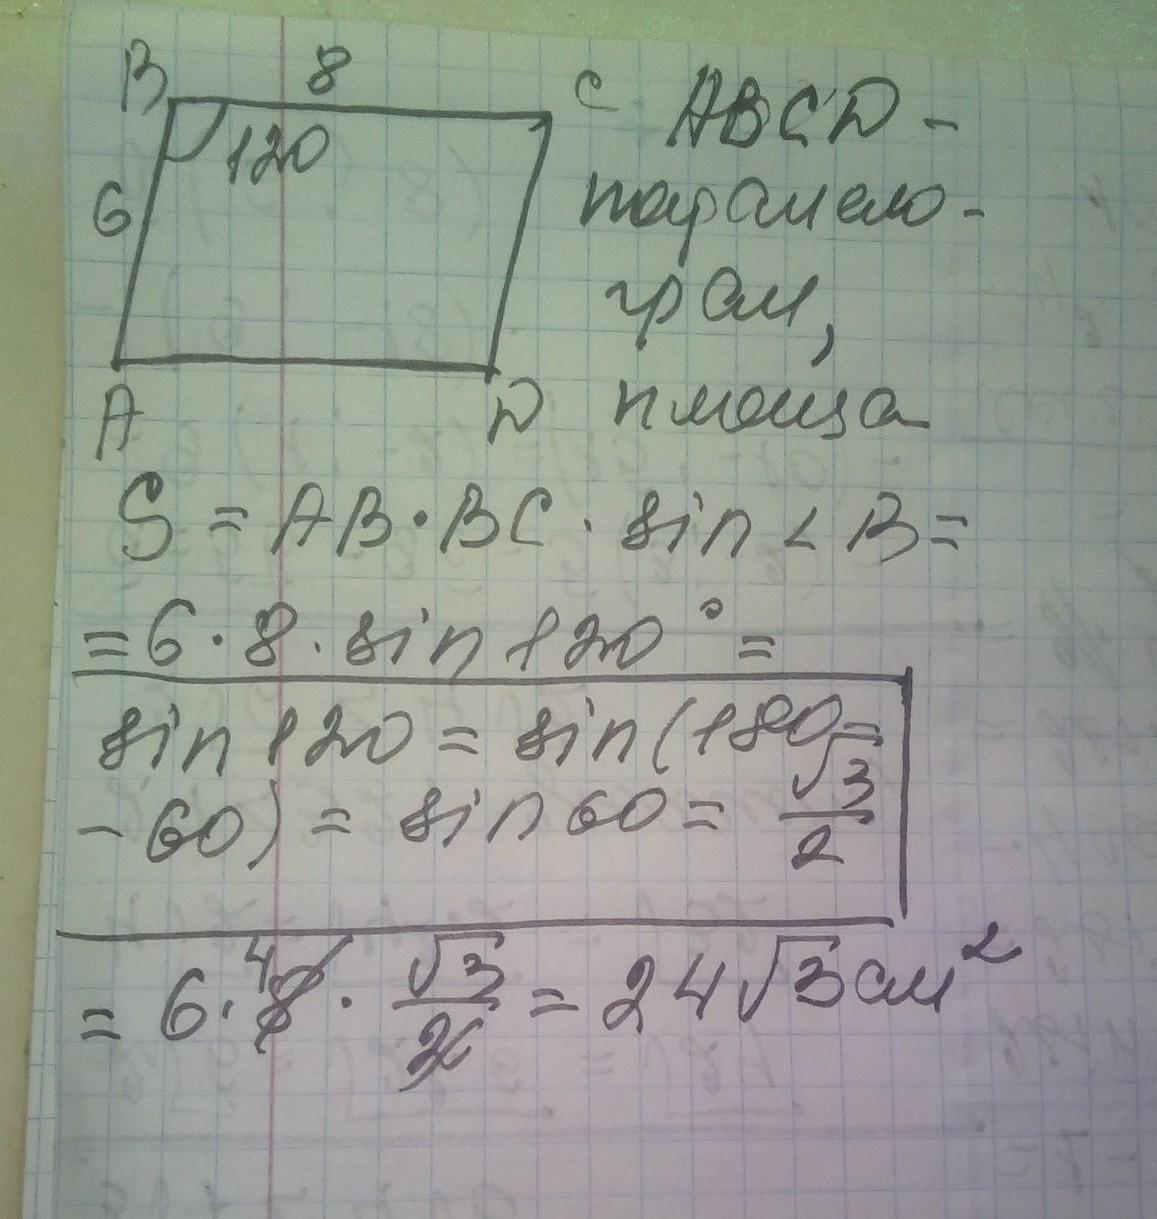 B 8 C
120
6
A D
ABCD -
паралело-
грам,
площа
S = AB · BC · sin < B =
= 6 · 8 · sin 120° =
sin 120 = sin (180 -
- 60) = sin 60 = √3/2
= 6 · 8 4 · √3/2 = 24√3 см²